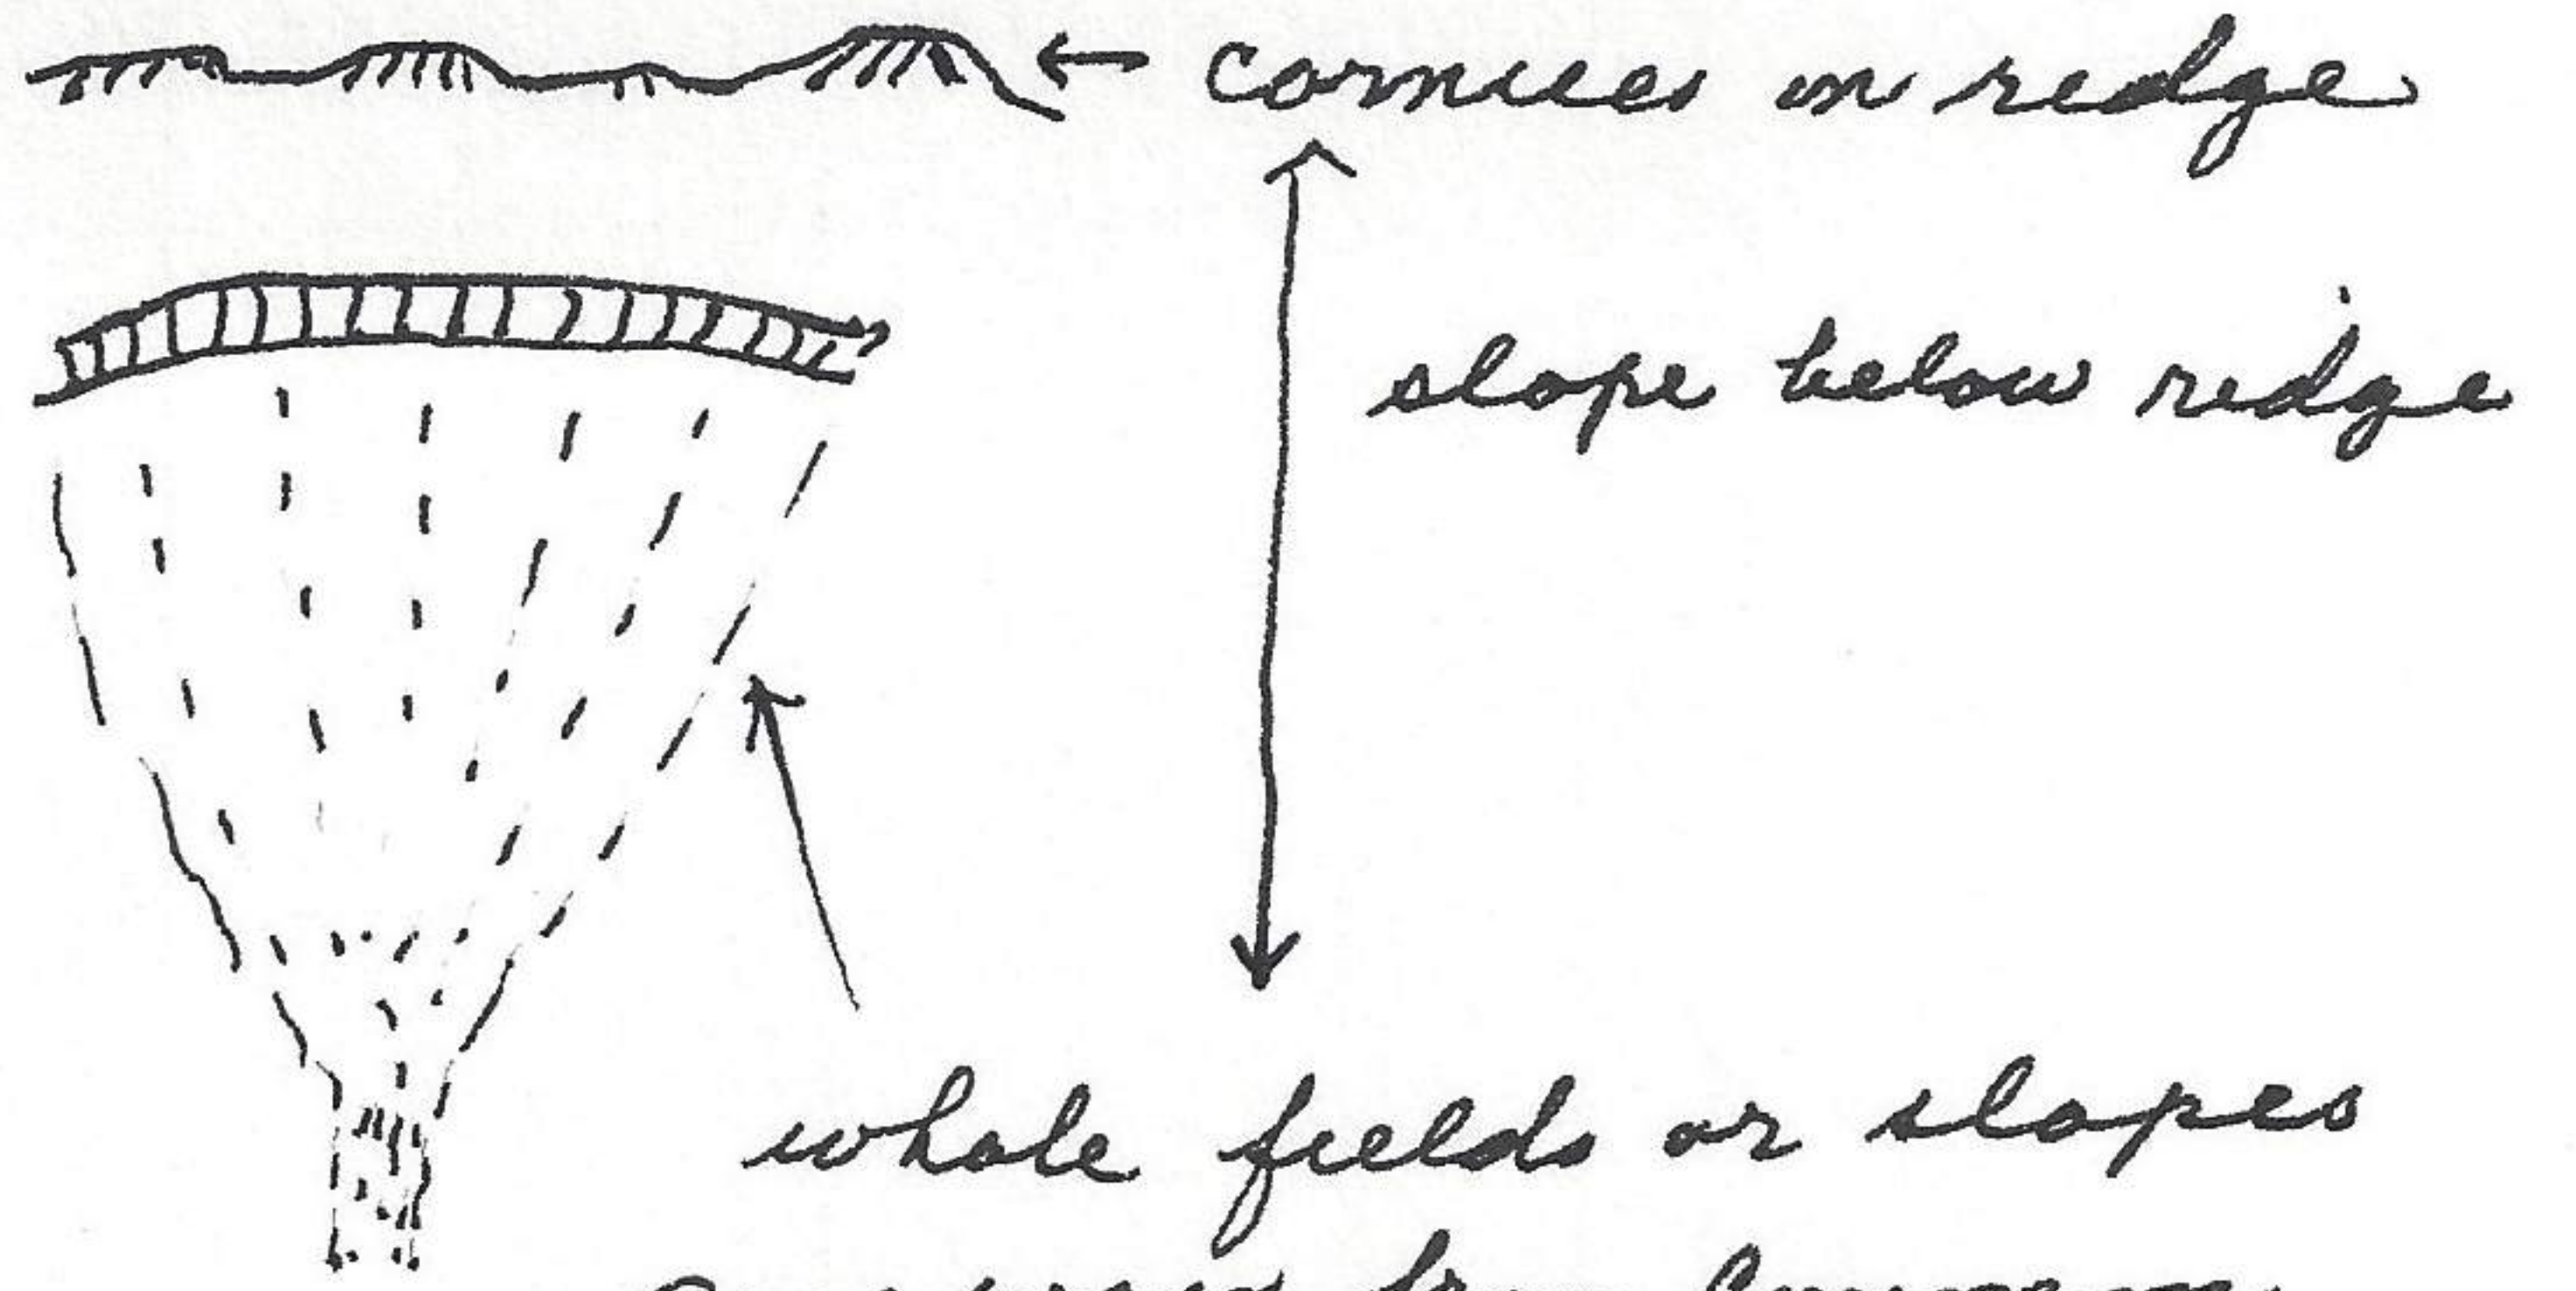 ← cornices on ridge
slope below ridge
whole fields or slopes
from